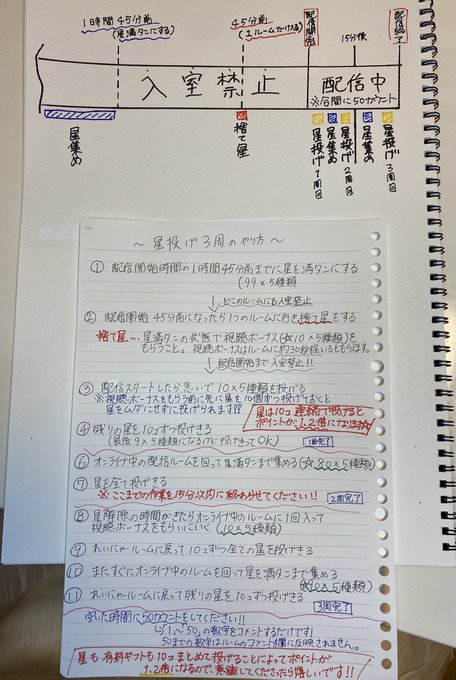 1時間45分前
(星満タンにする)
45分前
(1ルームだけ入る)
配信開始
15分後
配信終了
入室禁止
配信中
※合間に50カウント
星集め
捨て星
星投げ1周目
星集め
星投げ2周目
星集め
星投げ3周目
〜星投げ3周のやり方〜
① 配信開始時間の1時間45分前までに星を満タンにする
(99×5種類)
↓どこのルームにも入室禁止
② 配信開始45分前になったら1つのルームに行き捨て星をする
捨て星… 星満タンの状態で視聴ボーナス(☆10×5種類)を
もらうこと。視聴ボーナスはルームに約30秒程いるともらえます。
↓配信開始まで入室禁止!!
③ 配信スタートしたら急いで10×5種類を投げる
※視聴ボーナスをもらう前に先に星を10個ずつ投げておくと
星をムダにせずに投げられます??
星は10コ連続で投げると
ポイントが1.2倍になります☆
④ 残りの星を10コずつ投げきる
(最後9×5種類になるけど投げきってOK)
1周完了
⑥ オンライン中の配信ルームを回って星満タンまで集める(☆80×5種類)
⑦ 星を全て投げきる
※ここまでの作業を15分以内に終わらせてください!!
2周完了
⑧ 星解除の時間がきたらオンライン中のルームに1回入って
視聴ボーナスをもらいにいく(10×5種類)
⑨ れいにゃルームに戻って10コずつ全ての星を投げきる
⑩ またすぐにオンライン中のルームを回って星を満タンまで集める
(☆90×5種類)
⑪ れいにゃルームに戻って残りの星を10コずつ投げきる
3周完了
空いた時間に50カウントをしてください!!
↳"1〜50"の数字をコメントするだけです!
50までの数字はルームのコメント欄に反映されません。
星も有料ギフトも10コまとめて投げることによってポイントが
1.2倍になるので、意識してくださったら嬉しいです!!